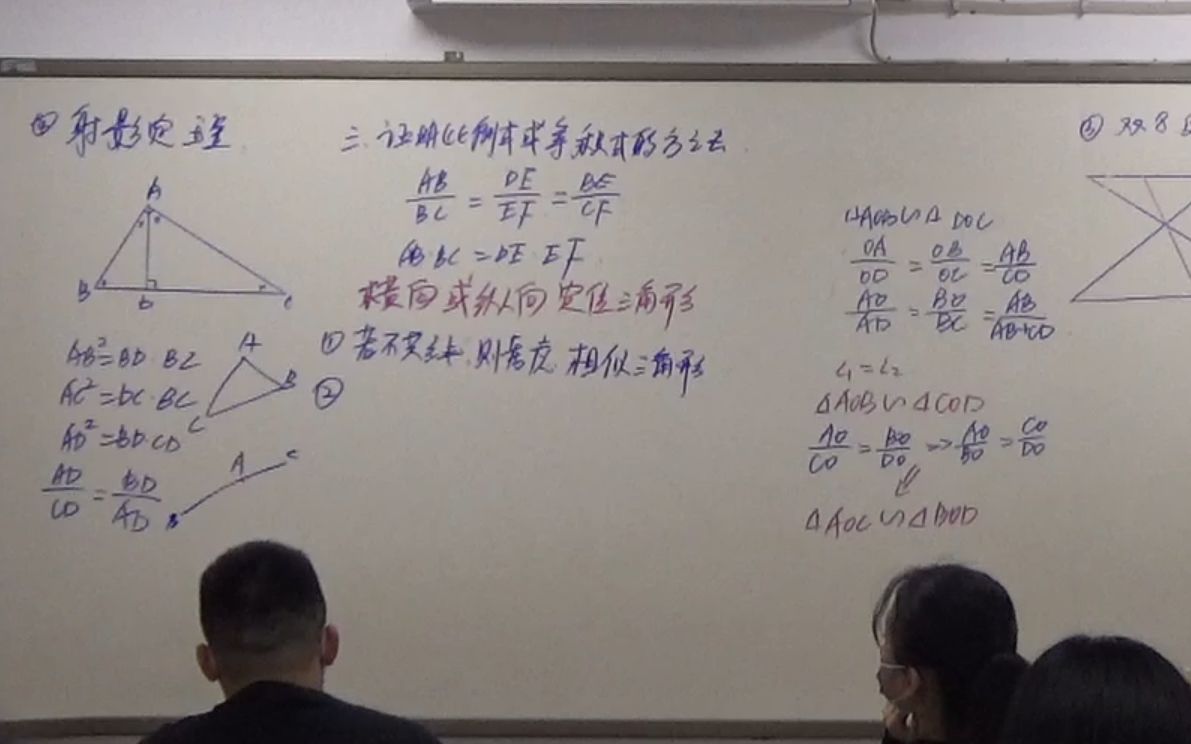 ④ 射影定理
A
B
D
C
AB²=BD·BC
AC²=DC·BC
AD²=BD·CD
AD/CD = BD/AD
A
B
C
A
C
B
三.证明比例式或等积式的方法
AB/BC = DE/EF = BE/CF
AB·BC=DE·EF
横向或纵向定位三角形
① 若不共线,则考虑相似三角形
②
△AOB∽△DOC
OA/OD = OB/OC = AB/CD
AO/AD = BO/BC = AB/AB+CD
∠1=∠2
△AOB∽△COD
AO/CO = BO/DO => AO/BO = CO/DO
△AOC∽△BOD
③ 双8